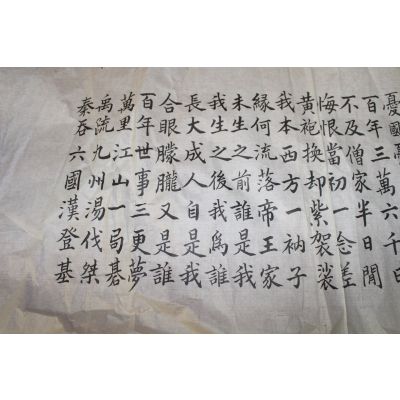 憂國
百年三萬六千日
不及僧家半日閒
悔恨當初一念差
黃袍換却紫袈裟
我本西方一衲子
緣何流落帝王家
未生之前誰是我
我生之後我爲誰
長大成人自是我
合眼朦朧又是誰
百年世事三更夢
萬里江山一局碁
禹疏九州湯伐桀
秦吞六國漢登基